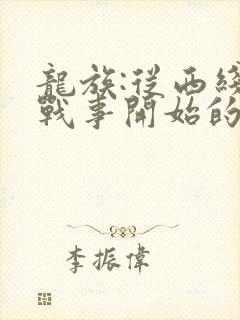 龍族:從西綫
戰事開始的
李振偉